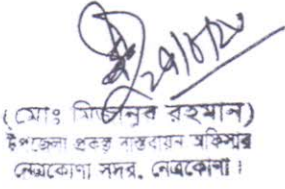 ২৭/৮/২০
(মোঃ মিজানুর রহমান)
উপজেলা প্রকল্প বাস্তবায়ন অফিসার
নেত্রকোণা সদর, নেত্রকোণা।